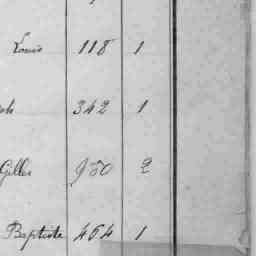 Louis 118 1
ph 342 1
Gilles 950 2
Baptiste 464 1